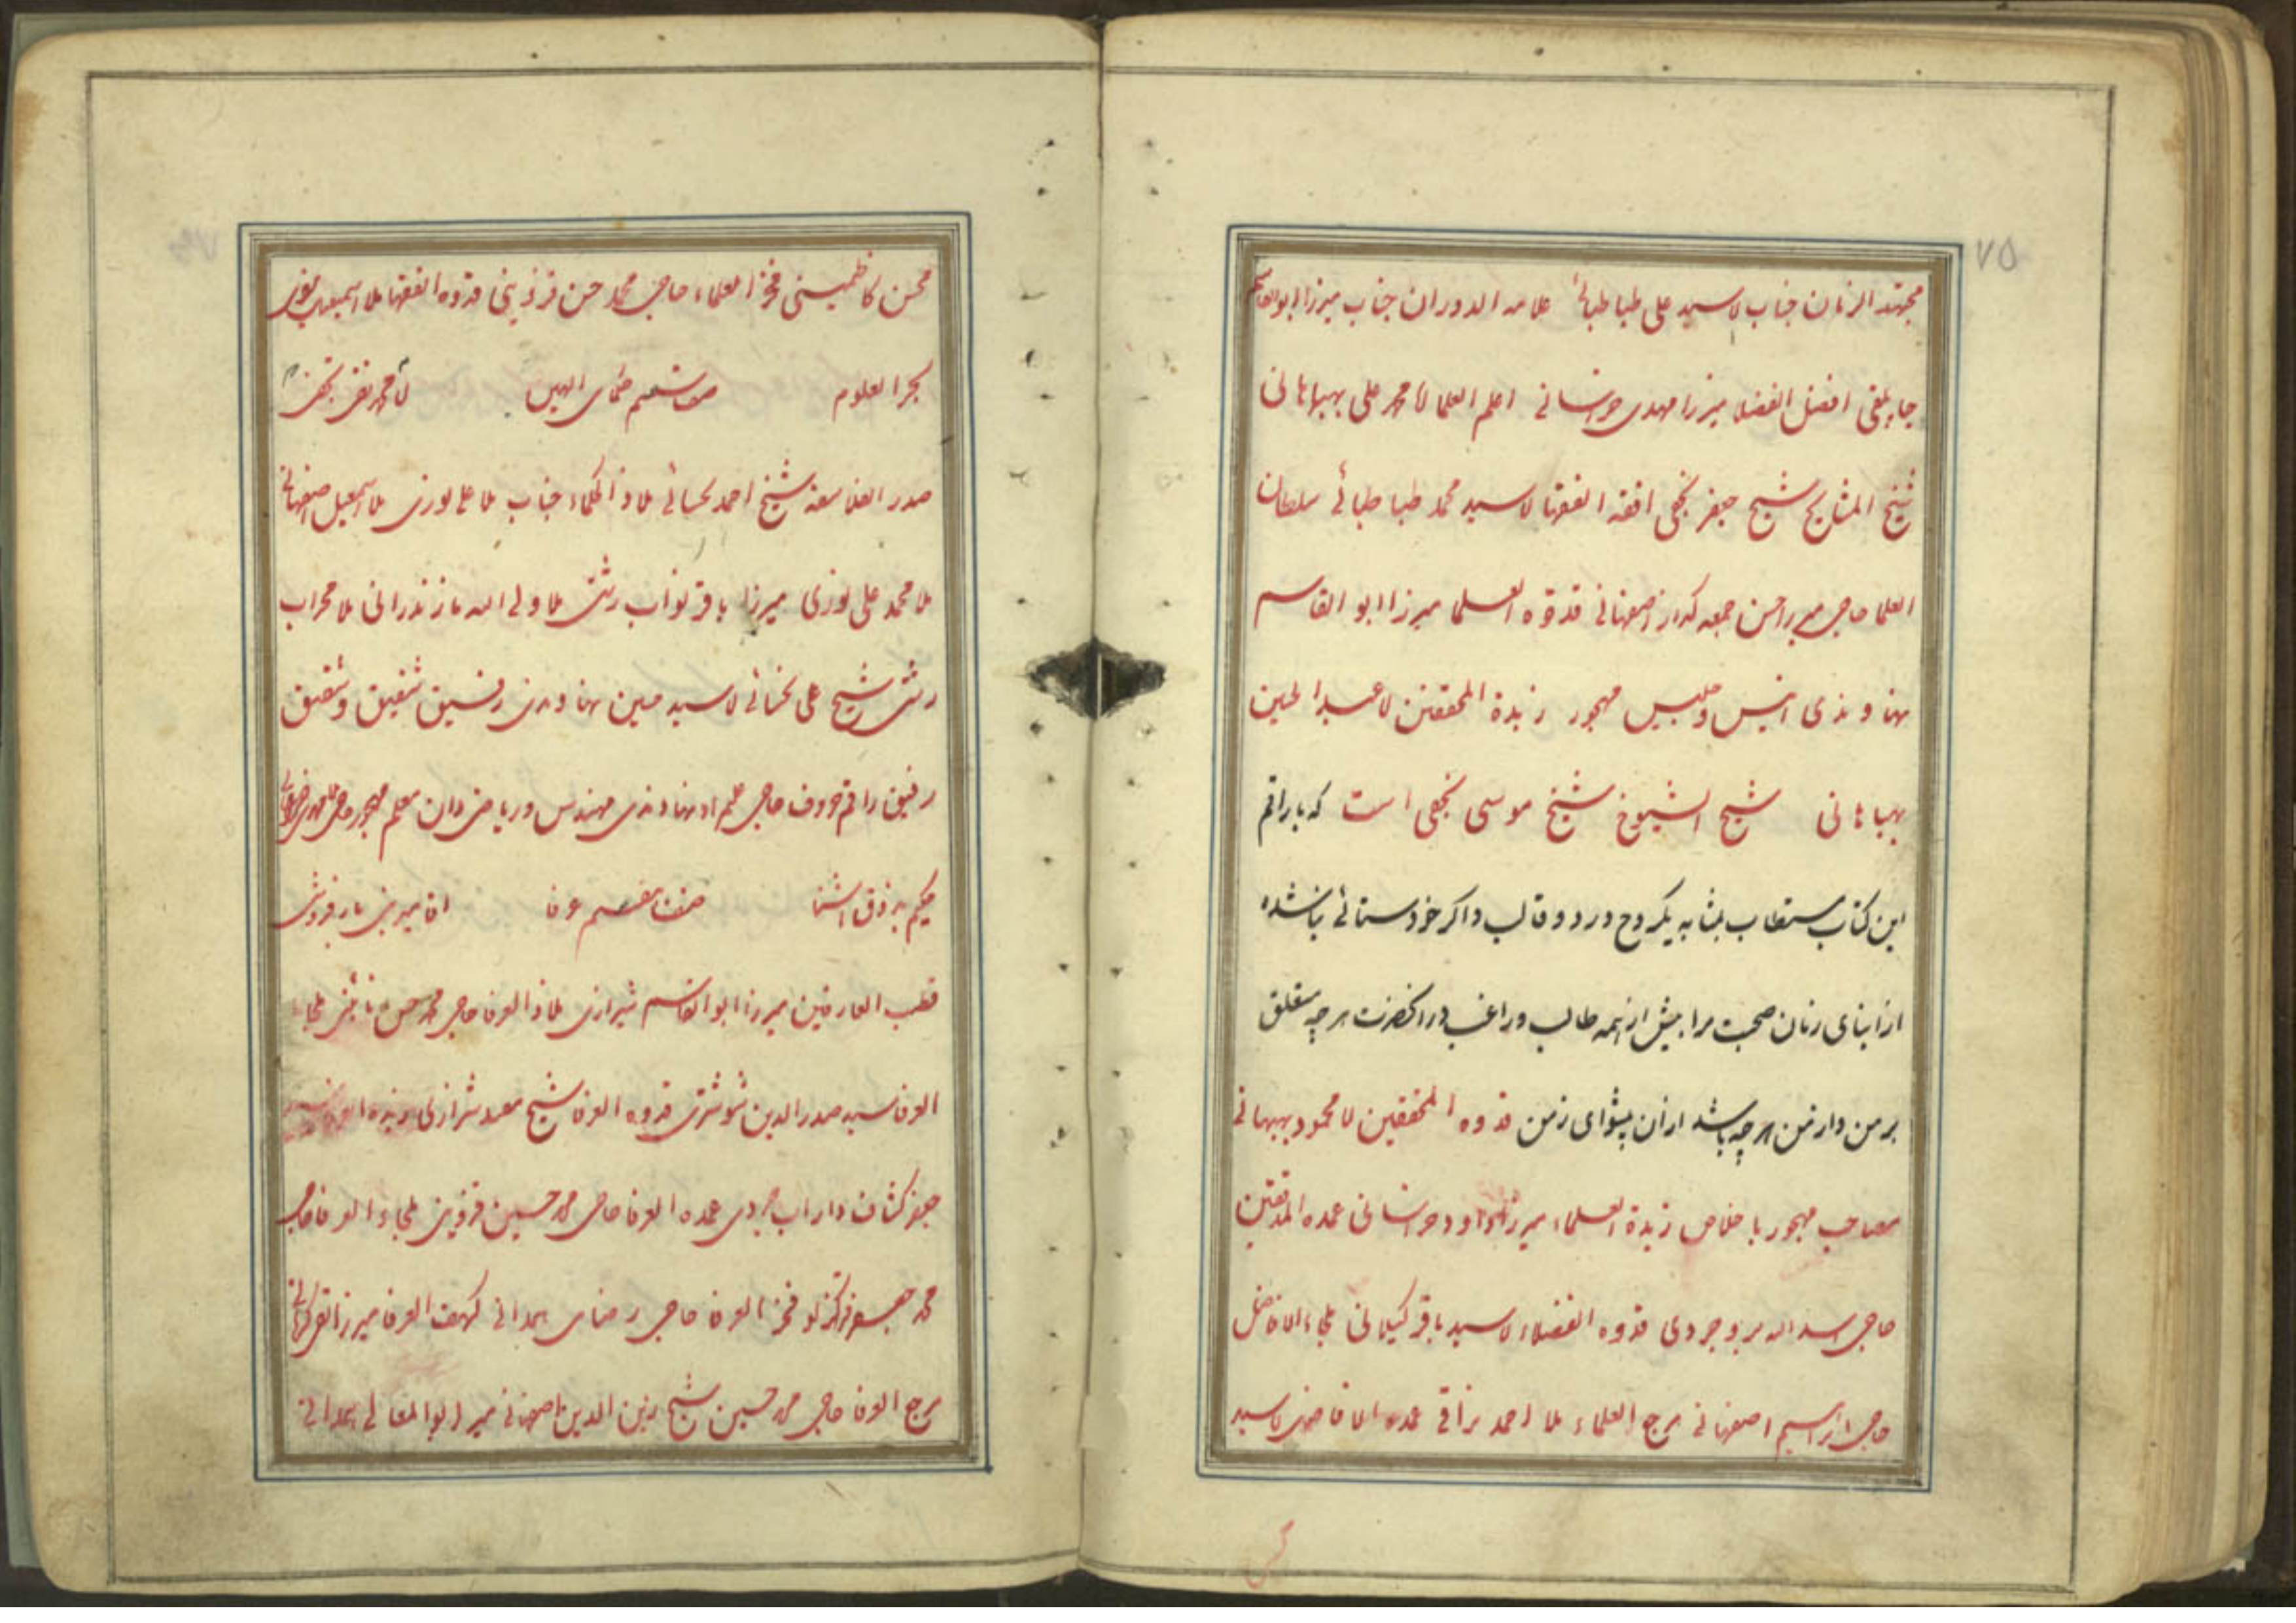 ۷۵
مجتهد الزمان جناب لا سید علی طباطبائی علامه الدوران جناب میرزا ابوالقاسم
جاپلقی افضل الفضلا میرزا مهدی خراسانی اعلم العلما لا محمد علی بهبهانی
شیخ المشایخ شیخ جعفر نجفی افقه الفقها لا سید محمد طباطبائی سلطان
العلما حاجی میر حسن جمعه اصفهانی قدوه العلما میرزا ابو القاسم
نهاوندی انیس و جلیس مهجور زبدة المحققین لا عبدالحسین
بهبهانی شیخ الشیوخ شیخ موسی نجفی است که با راقم
این کتاب مستطاب بمثابه یکروح در دو قالب و اگر خودستائی نباشد
از ابنای زمان صحبت مرا بیش از همه طالب و راغب در آنحضرت هر چه متعلق
بر من دارد من هر چه باشد از آن پیشوای زمن قدوه المحققین لا محمود بهبهانی
مصاحب مهجور با خلاص زبدة العلماء میرزا داود خراسانی عمده المدققین
حاجی اسد اله بروجردی قدوه الفضلاء لا سید باقر کیلانی ملجاء الافاضل
حاجی ابراهیم اصفهانی مرجع العلماء ملا احمد نراقی عمده الافاضل لا سید
محسن کاظمینی فخر العلماء حاجی محمد حسن قزوینی قدوه الفقها ملا اسمعیل
بحر العلوم صف ششم حکمای الهیین لا محمد نقی نجفی
صدر الفلاسفه شیخ احمد لحسائی ملاذ الحکماء جناب ملا علی نوری ملا اسمعیل اصفهانی
ملا محمد علی نوری میرزا باقر نواب رشتی ملا ولی اله مازندرانی ملا محراب
رشتی شیخ علی لحسائی لا سید مبین نهاوندی رفیق شفیق و شقیق
رفیق راقم حروف حاجی نهاوندی مهندس و ریاضی دان معلم مهجور
حکیم به ذوق آشنا صف هفتم عرفا آقا میر بارفروشی
قطب العارفین میرزا ابوالقاسم شیرازی ملاذ العرفا حاجی محمد حسن نائینی ملجاء
العرفا سید صدر الدین شوشتری قدوه العرفا شیخ شیرازی زبده العرفا سید
جعفر کشاف داراب جردی عمده العرفا حاجی محمد حسین قزوینی ملجاء العرفا حاجی
محمد جعفر قراکزلو فخر العرفا حاجی رضای همدانی کهف العرفا میرزا تقی کرمانی
مرجع العرفا حاجی محمد حسین شیخ زین الدین اصفهانی میر ابوالمعالی همدانی